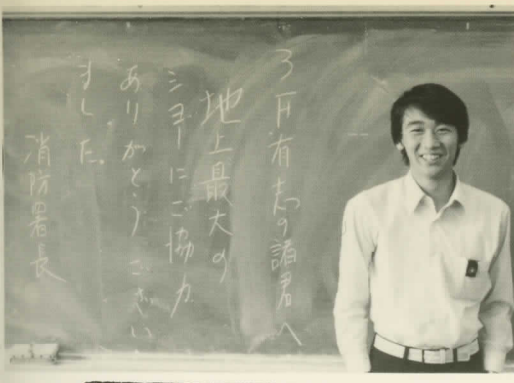 3F有志の諸君へ
地上最大の
ショーにご協力
ありがとうございい
ました。
消防署長